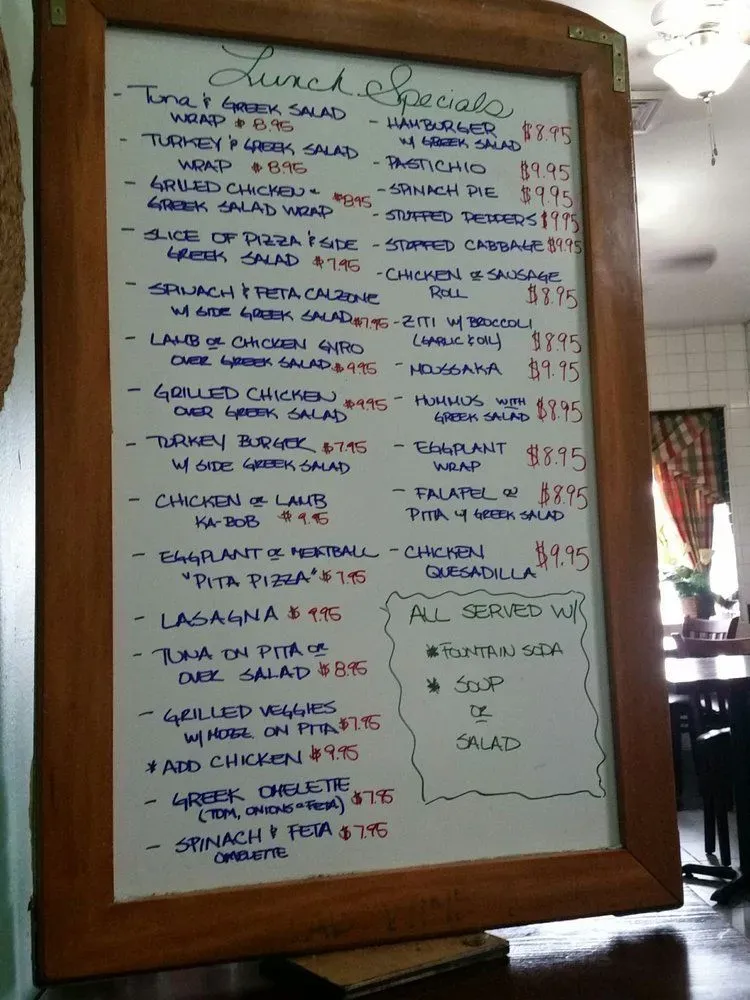 Lunch Specials
- Tuna & GREEK SALAD
WRAP $8.95
- TURKEY & GREEK SALAD
WRAP $8.95
- GRILLED CHICKEN &
GREEK SALAD WRAP $8.95
- SLICE OF PIZZA & SIDE
GREEK SALAD $7.95
- SPINACH & FETA CALZONE
W/ SIDE GREEK SALAD $7.95
- LAMB OR CHICKEN GYRO
OVER GREEK SALAD $9.95
- GRILLED CHICKEN
OVER GREEK SALAD $9.95
- TURKEY BURGER $7.95
W/ SIDE GREEK SALAD
- CHICKEN OR LAMB
KA-BOB $9.95
- EGGPLANT OR MEATBALL
"PITA PIZZA" $7.95
- LASAGNA $9.95
- TUNA ON PITA OR
OVER SALAD $8.95
- GRILLED VEGGIES
W/ MOZZ. ON PITA $7.95
* ADD CHICKEN $9.95
- GREEK OMELETTE
(TOM, ONIONS & FETA) $7.95
- SPINACH & FETA $7.95
OMELETTE
- HAMBURGER $8.95
W/ GREEK SALAD
- PASTICHIO $9.95
- SPINACH PIE $9.95
- STUFFED PEPPERS $9.95
- STOFFED CABBAGE $9.95
- CHICKEN OR SAUSAGE
ROLL $8.95
- ZITI W/ BROCCOLI
(GARLIC & OIL) $8.95
- MOUSSAKA $9.95
- HUMMUS WITH
GREEK SALAD $8.95
- EGGPLANT
WRAP $8.95
- FALAPEL OR $8.95
PITA W/ GREEK SALAD
- CHICKEN $9.95
QUESADILLA
ALL SERVED W/
* FOUNTAIN SODA
* SOUP
OR
SALAD